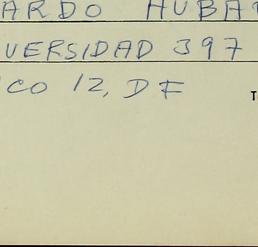 ARDO HUBA
VERSIDAD 397
CO 12, DF
T